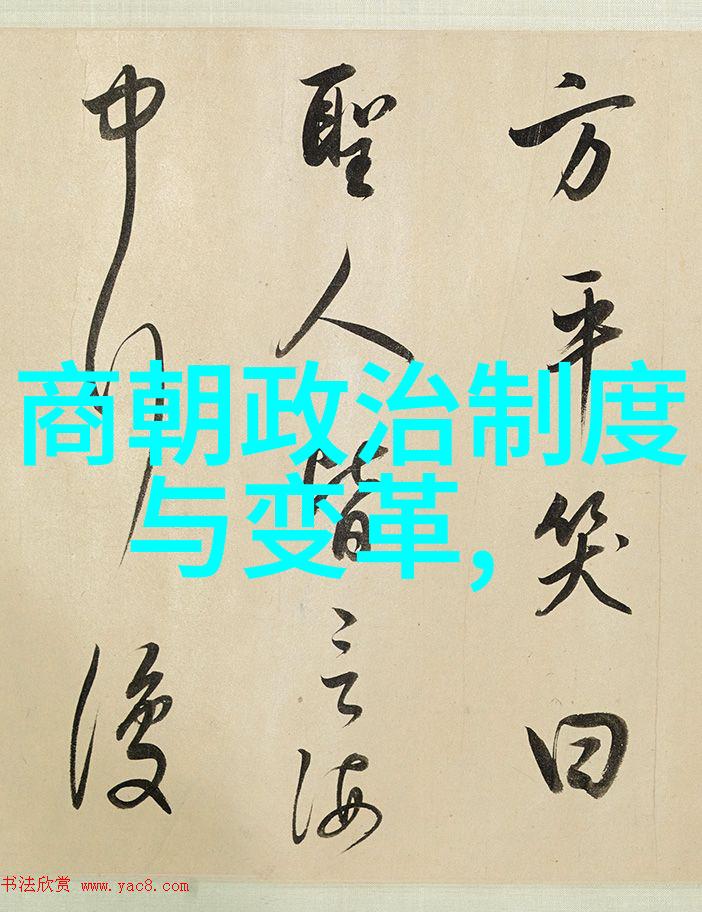 方平笑曰
聖人皆言海
中行復
商朝政治制度
与变革,
书法欣赏 www.yac8.com